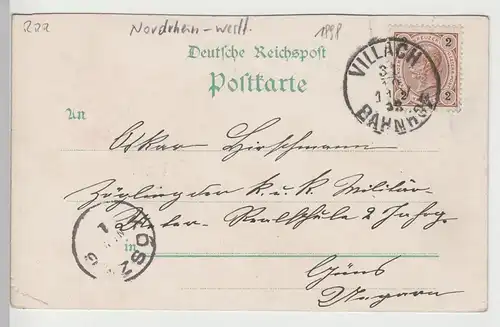 222 Nordrhein-Westf. 1898
Deutsche Reichspost
Postkarte
2 2
2 2
VILLACH
BAHNHOF
An
Oskar Hirschmann
Zögling der k. u. k. Militär-
Unter-Realschule 2 Jahrg.
in
Güns
Ungarn
KÖSZ